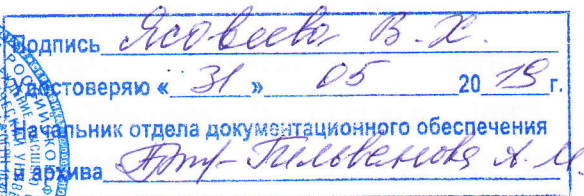 Подпись Ясовеева В. Х.
Удостоверяю « 31 » 05 20 19 г.
Начальник отдела документационного обеспечения
и архива А.